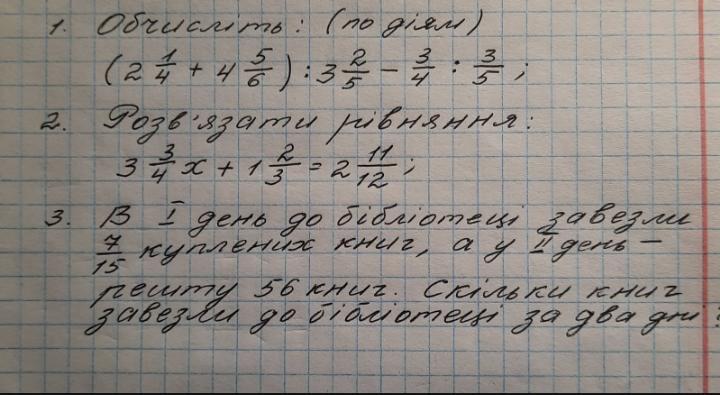 1. Обчисліть: (по діям)
(2 1/4 + 4 5/6) : 3 2/5 − 3/4 : 3/5 ;
2. Розв'язати рівняння:
3 3/4 x + 1 2/3 = 2 11/12 ;
3. В I день до бібліотеці завезли
7/15 куплених книг, а у II день –
решту 56 книг. Скільки книг
завезли до бібліотеці за два дні?